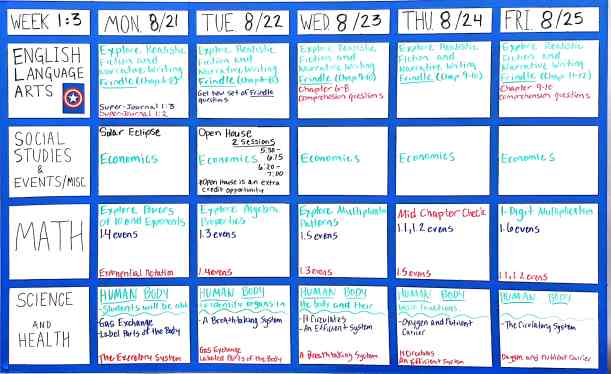 WEEK 1:3
MON. 8/21
TUE. 8/22
WED 8/23
THU 8/24
FRI. 8/25
ENGLISH
LANGUAGE
ARTS
Explore Realistic
Fiction and
Narrative Writing
Frindle
Super-Journal 1:3
Super-Journal 1:2
Explore Realistic
Fiction and
Narrative Writing
Frindle
Get new set of Frindle
questions
Explore Realistic
Fiction and
Narrative Writing
Frindle
Chapter 6-8
comprehension questions
Explore Realistic
Fiction and
Narrative Writing
Frindle (Chap 9-10)
Explore Realistic
Fiction and
Narrative Writing
Frindle (Chap 11-12)
Chapter 9-10
comprehension questions
SOCIAL
STUDIES
&
EVENTS/MISC
Solar Eclipse
Economics
Open House
2 Sessions
5:30-
6:15
6:30-
7:00
Economics
*Open House is an extra
credit opportunity
Economics
Economics
Economics
MATH
Explore Powers
of 10 and Exponents
1.4 evens
Exponential Notation
Explore Algebra
Properties
1.3 evens
1.4 evens
Explore Multiplication
Patterns
1.5 evens
1.3 evens
Mid Chapter Check
1.1, 1.2 evens
1.5 evens
1-Digit Multiplication
1.6 evens
1.1, 1.2 evens
SCIENCE
AND
HEALTH
HUMAN BODY
-Students will be able
Gas Exchange
-Label Parts of the Body
The Excretory System
HUMAN BODY
to identify organs in
-A Breathtaking System
Gas Exchange
Labeled Parts of the Body
HUMAN BODY
the body and their
-It Circulates
-An Efficient System
A Breathtaking System
HUMAN BODY
basic functions
-Oxygen and Nutrient
Carrier
It Circulates
An Efficient System
HUMAN BODY
-The Circulatory System
Oxygen and Nutrient Carrier